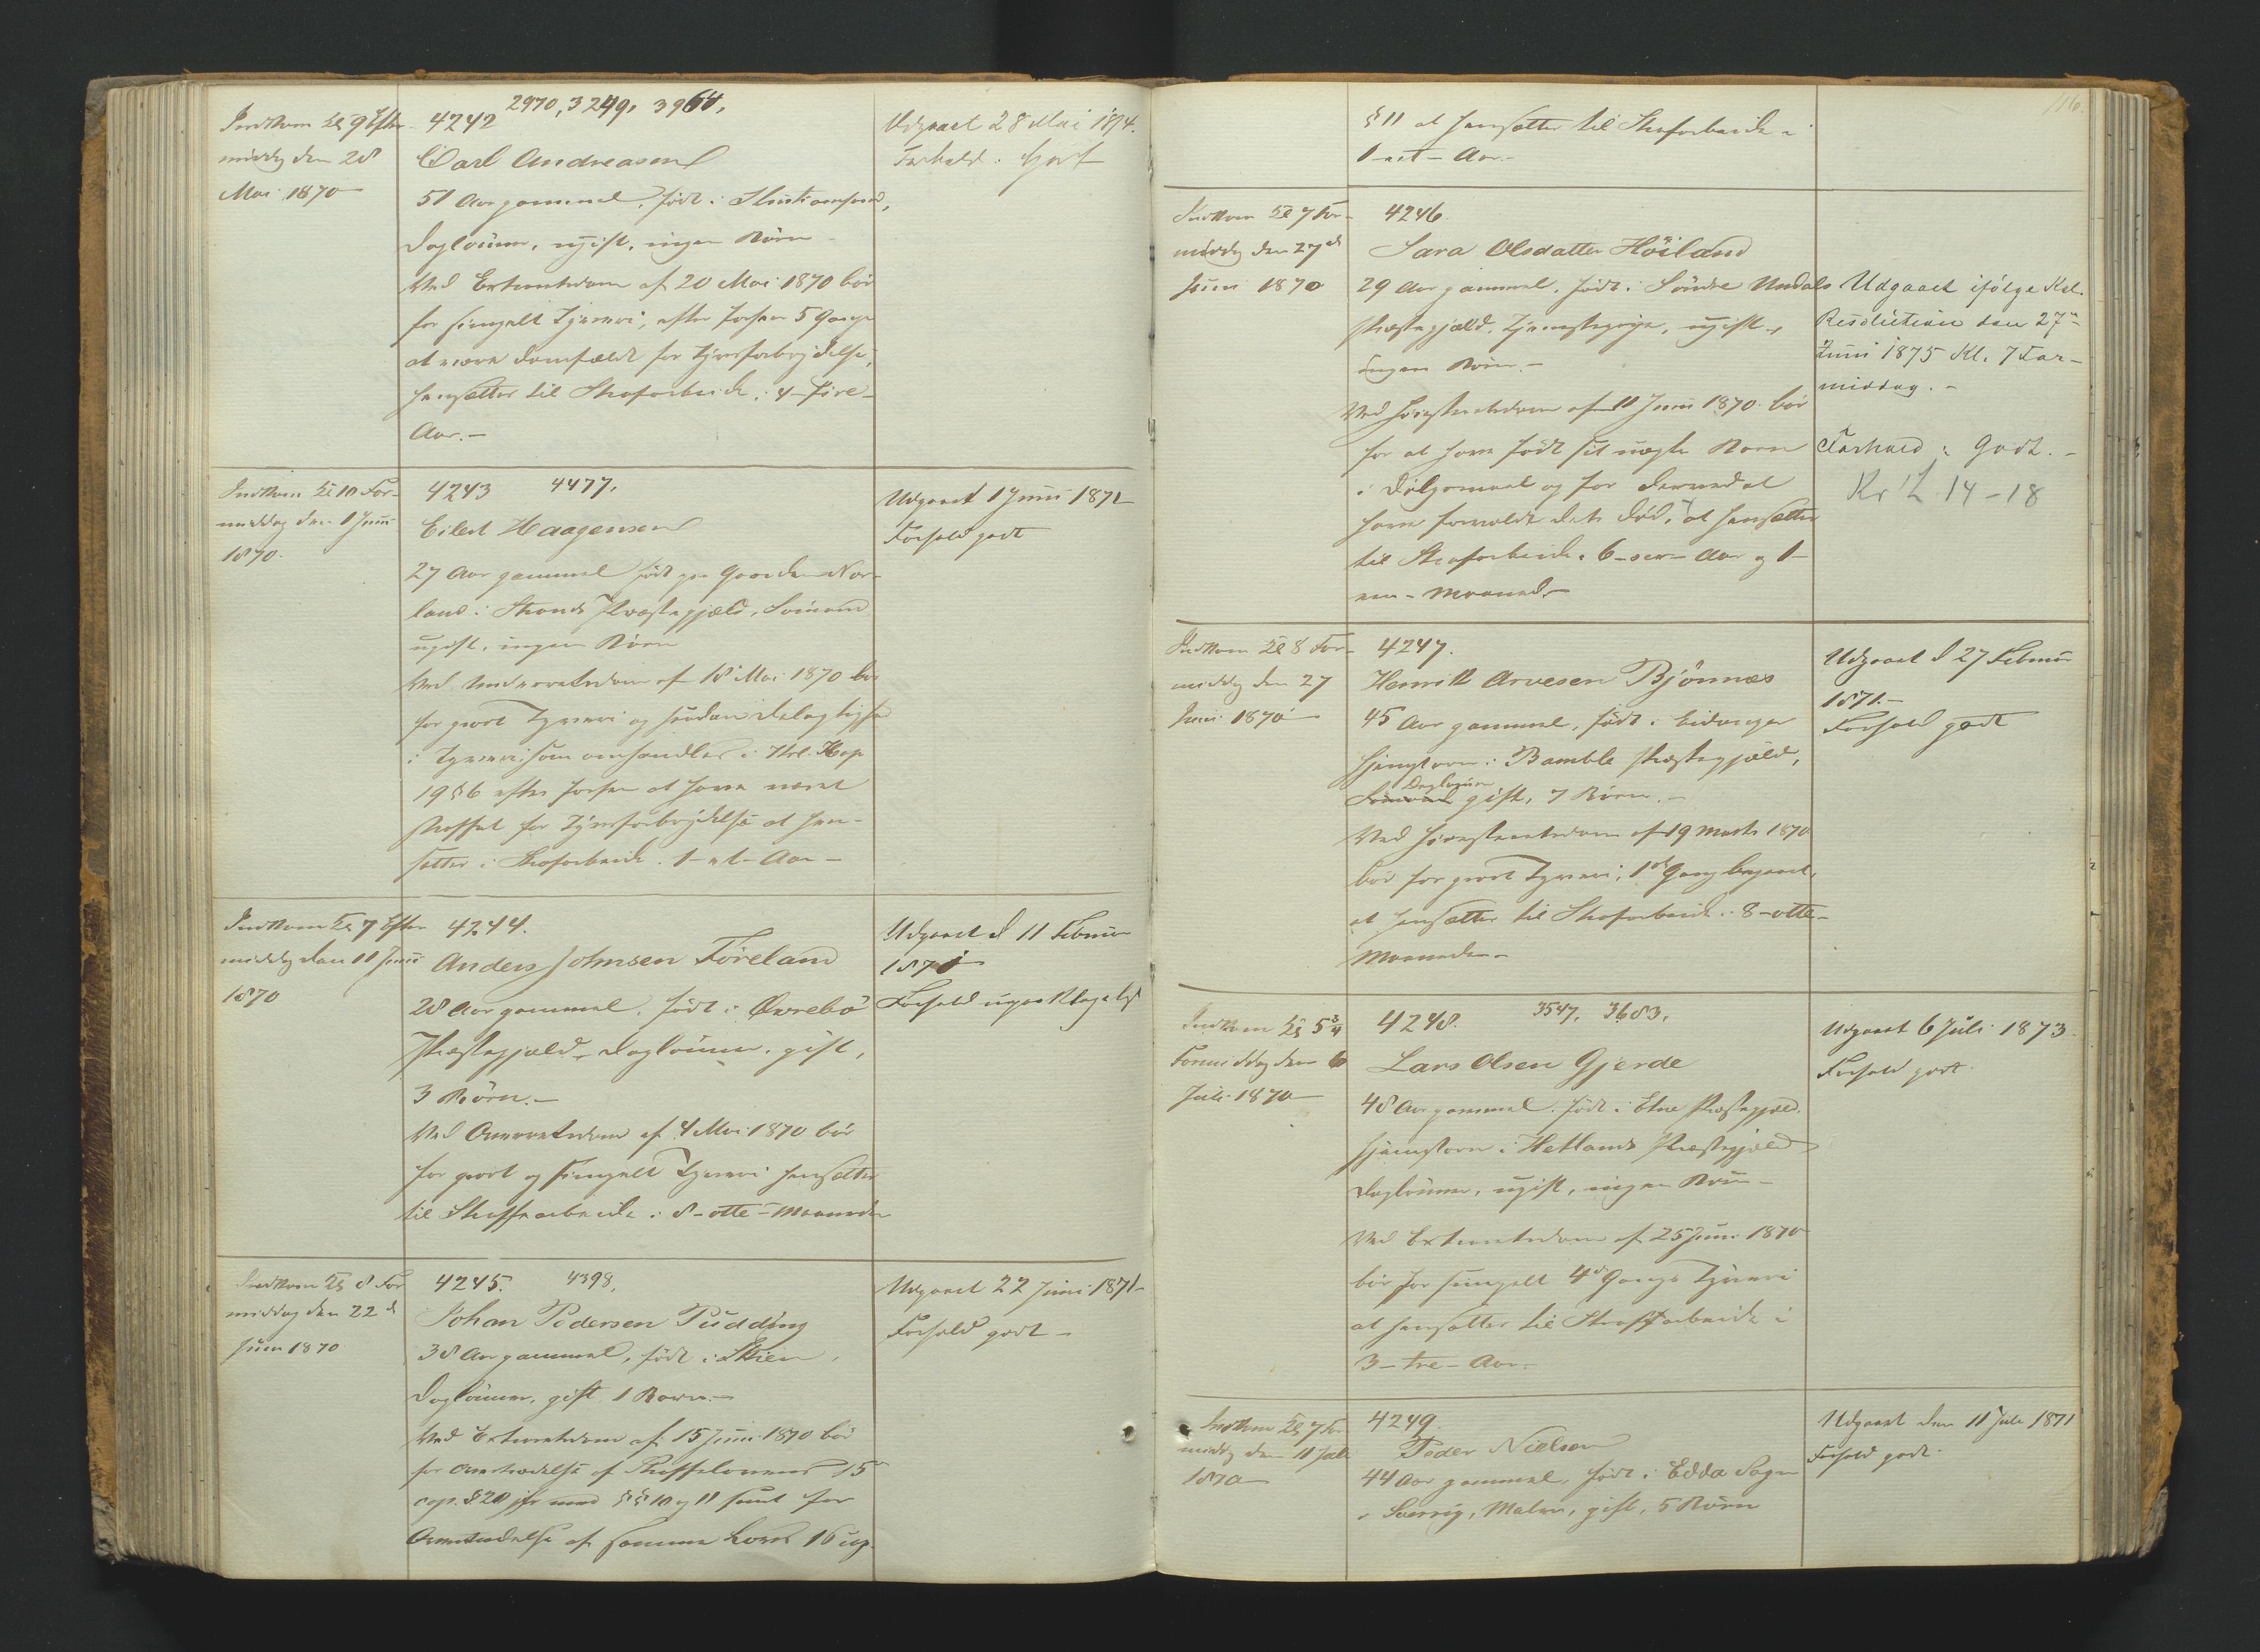 Indkom Kl 9 Efter-
middg den 28
Mai 1870
4242 2970, 3249, 3964,
Carl Andreasen
51 Aar gammel, født i Christiansand,
Daglønner, ugift, ingen Børn
Ved Extraretsdom af 20 Mai 1870 bør
for simpelt Tyveri, efter forhen 5 Gange
at være domfældt for Tyvsforbrydelse,
hensættes til Strafarbeide i 4-fire-
Aar.-
Udgaaet 28 Mai 1874.
Forhold: Godt
Indkom Kl 10 For-
middag den 1 Juni
1870.
4243 4477,
Eilert Haagensen
27 Aar gammel født paa Gaarden Nor-
land i Strands Præstegjæld, Sømand
ugift, ingen Børn
Ved Underretsdom af 18 Mai 1870 bør
for grovt Tyveri og saadan Delagtighed
i Tyveri som omhandles i Strl. Kap
19 § 6 efter forhen at have været
straffet for Tyvsforbrydelse at hen-
sættes i Strafarbeide 1-et-Aar-
Udgaaet 1 Juni 1871
Forhold godt
Indkom Kl 7 Efter
middg den 11 Juni
1870
4244.
Anders Johnsen Føreland
28 Aar gammel, født i Øvrebø
Præstegjæld, Daglønner, gift,
3 Børn.-
Ved Overretsdom af 4 Mai 1870 bør
for grovt og simpelt Tyveri hensættes
til Straffearbeide i 8-otte-Maaneder
Udgaaet d 11 Februar
1871
Forhold upaaklageligt
Indkom Kl 8 For
middag den 22 d
Juni 1870
4245. 4398,
Johan Pedersen Pudding
38 Aar gammel, født i Skien,
Daglønner, gift 1 Barn.-
Ved Extraretsdom af 15 Juni 1870 bør
for Overtrædelse af Straffelovens 15
cap. § 20 jfr med §§ 10 og 11 samt for
Overtrædelse af samme Lovs 16 cap.
Udgaaet 22 Juni 1871-
Forhold godt-
116.
§ 11 at hensættes til Strafarbeide i
1-et-Aar.-
Indkom Kl 7 For-
middg den 27 d
Juni 1870
4246.
Sara Olsdatter Høiland
29 Aar gammel, født i Søndre Undals
Præstegjæld, Tjenestepige, ugift,
ingen Børn.-
Ved Høiesteretsdom af 11 Juni 1870 bør
for at have født sit uægte Barn
i Dølgsmaal og for derved at
have forvoldt dets Død, at hensættes
til Strafarbeide i 6-sex-Aar og 1-
een-Maaned.-
Udgaaet ifølge Kgl.
Resolution den 27 n
Juni 1875 Kl. 7 For-
middag.-
Forhold: Godt.-
Kr 14-18
Indkom Kl 8 For-
middg den 27
Juni 1870
4247.
Henrik Arvesen Bjønnæs
45 Aar gammel, født i Eidanger
hjemstavn i Bamble Præstegjæld,
Daglønner
Sømand gift, 7 Børn.-
Ved Høiesteretsdom af 19 Marts 1870
bør for grovt Tyveri, 1ste Gang begaaet,
at hensættes til Strafarbeide i 8-otte-
Maaneder-
Udgaaet d 27 Februar
1871.-
Forhold godt
Indkom Kl 5 3/4
Formiddag den 6
Juli 1870
4248. 3547, 3683,
Lars Olsen Gjerde
48 Aar gammel, født i Etne Præstegjæld
hjemstavn i Hetlands Præstegjæld
Daglønner, ugift, ingen Børn-
Ved Extraretsdom af 25 Juni 1870
bør for simpelt 4de Gangs Tyveri
at hensættes til Straffarbeide i
3-tre-Aar.-
Udgaaet 6 Juli 1873
Forhold godt
Indkom Kl 7 For
middg den 11 Juli
1870
4249
Peder Nielsen
44 Aar gammel, født i Edda Sogn
i Sverrig, Maler, gift, 5 Børn
Udgaaet den 11 Juli 1871
Forhold godt.